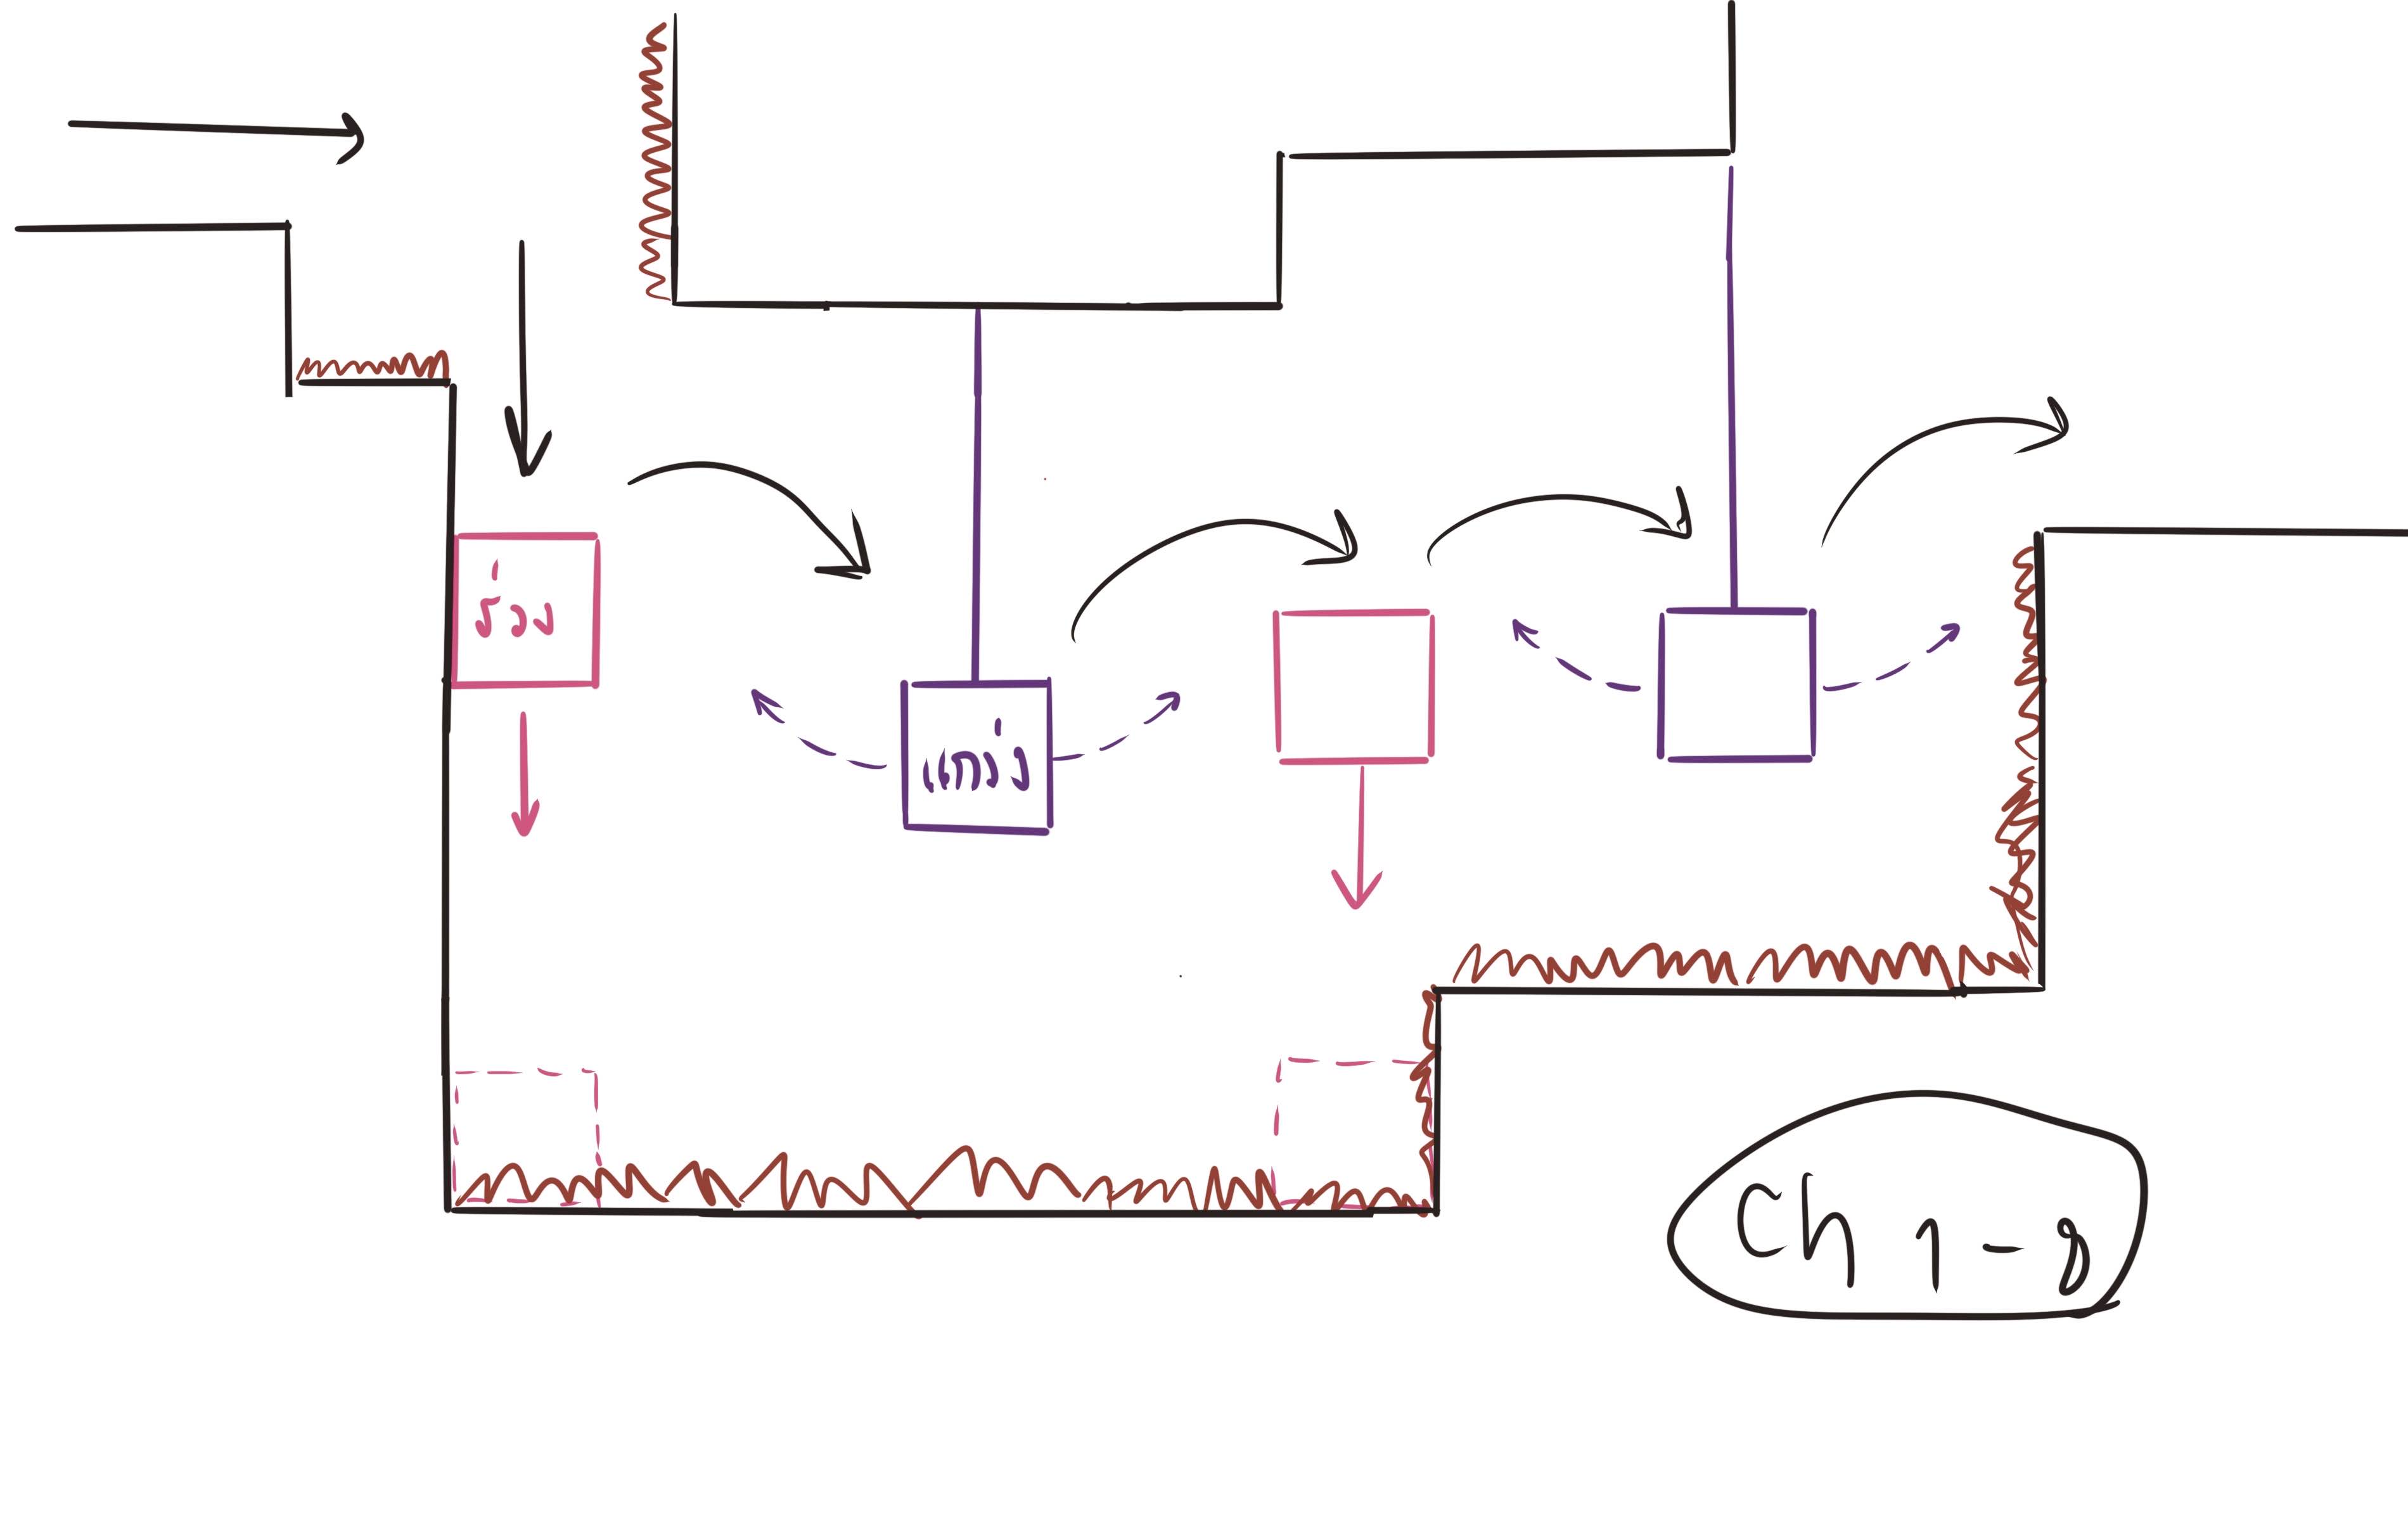 ร่วง
แกว่ง
Ch 1-8